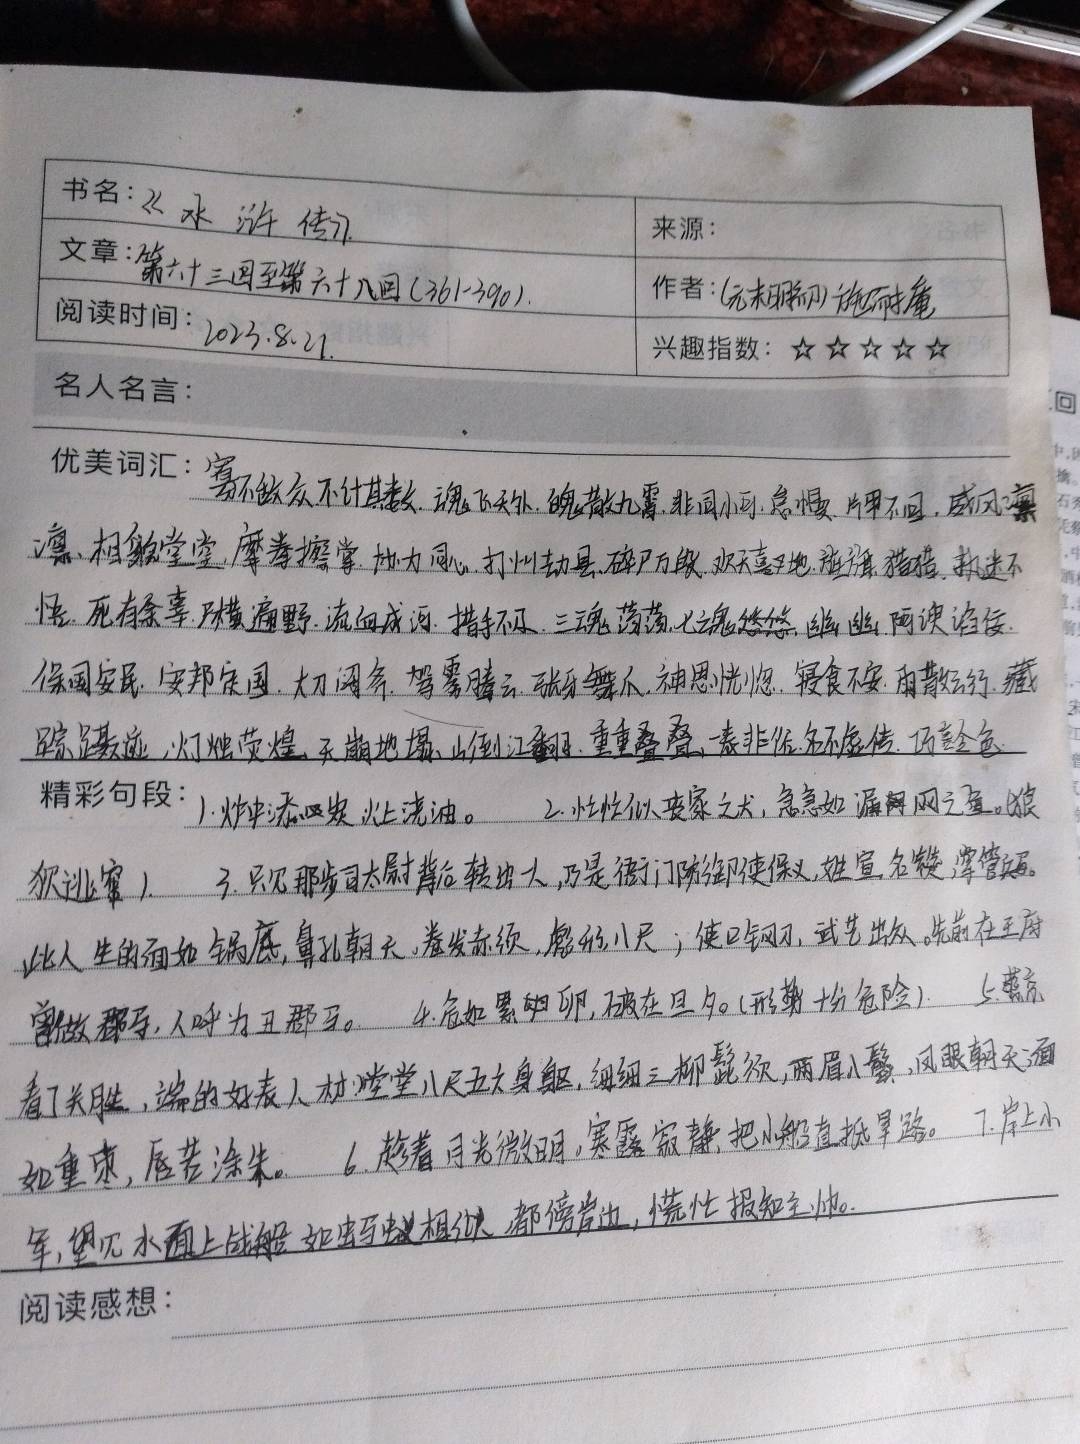 书名：《水浒传》
来源：
文章：第六十三回至第六十八回(361-390).
作者：(元末明初)施耐庵
阅读时间：2023.8.21.
兴趣指数：☆☆☆☆☆
名人名言：
优美词汇：寡不敌众.不计其数.魂飞天外.魄散九霄.非同小可.怠慢.片甲不回.威风凛
凛.相貌堂堂.摩拳擦掌.协力同心.打州劫县.碎尸万段.欢天喜地.旌旗猎猎.执迷不
悟.死有余辜.尸横遍野.流血成河.措手不及.三魂荡荡.七魂悠悠.幽幽.阿谀谄佞.
保国安民.安邦定国.大刀阔斧.驾雾腾云.张牙舞爪.神思恍惚.寝食不安.雨散云行.藏
踪蹑迹.灯烛荧煌.天崩地塌.山倒江翻.重重叠叠.名不虚传.
精彩句段：1.炉中添炭,火上浇油。 2.忙忙似丧家之犬,急急如漏网之鱼。(狼
狈逃窜). 3.只见那步司太尉背后转出一人,乃是衙门防御使保义,姓宣,名赞,掌管兵马。
此人生的面如锅底,鼻孔朝天,卷发赤须,彪形八尺；使口钢刀,武艺出众。先前在王府
曾做郡马,人呼为丑郡马。 4.危如累卵,破在旦夕。(形势十分危险). 5.蔡京
看了关胜,端的好表人材.堂堂八尺五六身躯,细细三柳髭须,两眉入鬓,凤眼朝天；面
如重枣,唇若涂朱。 6.趁着月光微明,寒露寂静,把小船直抵旱路。 7.岸上小
军,望见水面上战船如蚂蚁相似,都傍岸边,慌忙报知主帅。
阅读感想：